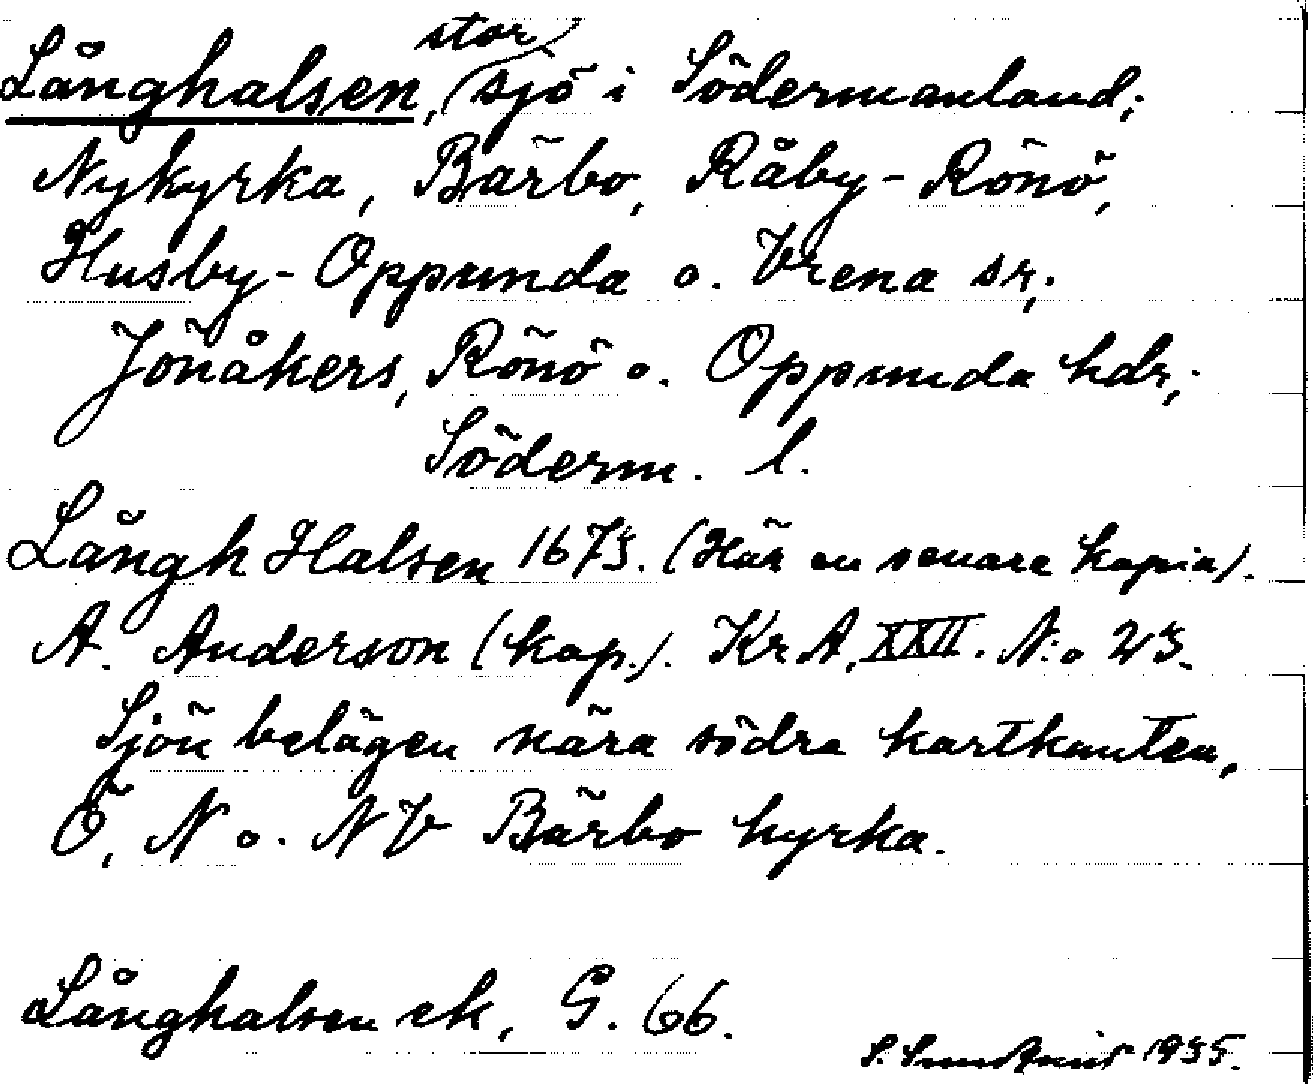 Långhalsen, stor sjö i Södermanland;
Nykyrka, Bärbo, Råby-Rönö,
Husby-Oppunda o. Vrena sr;
Jönåkers, Rönö o. Oppunda hdr;
Söderm. l.
Långh Halsen 1675. (Här en senare kopia).
A. Anderson (kop.). Kr A, XXII. N:o 25.
Sjön belägen nära södra kartkanten,
Ö, N o. NV Bärbo kyrka.
Långhalsen ek, G. 66.
S. 1935.